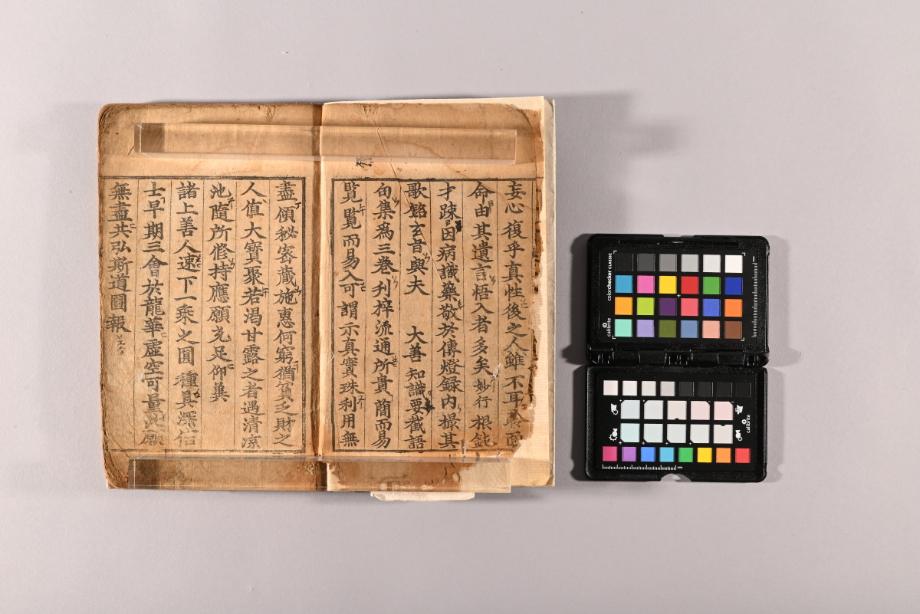 妄心復乎真性後之人雖不耳 面
命由其遺言悟入者多矣妙行根鈍
才踈因病識藥敬於傳燈録內撮其
歌銘玄旨與夫 大善知識要截語
句集為三卷刋梓流通所貴簡而易
覧覧而易入可謂示真實珠利用無
盡傾秘密蔵施惠何窮猶貧乏財之
人值大寶聚若渴甘露之者遇清凉
池隨所修持應願充足仰兾
諸上善人速下一乘之圓種真深信
士早期三會於龍華虚空可量此願
無盡共弘斯道圖報
colorchecker CLASSIC
calibrite
calibrite